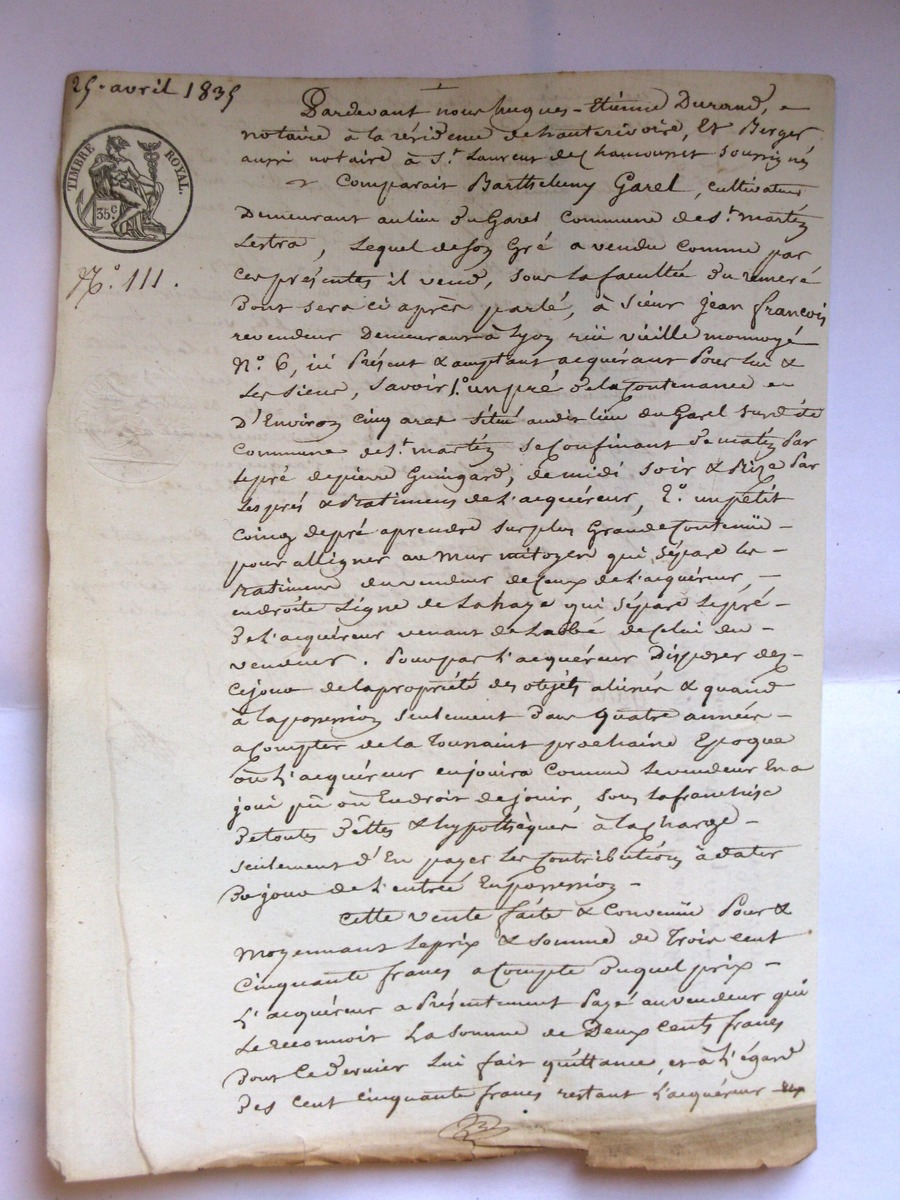 25. avril 1835
TIMBRE ROYAL.
35c
N.o 111.
Pardevant nous hugues-Etienne Durand,
notaire à la résidence de hauterivoire, Et Berger
aussi notaire à St. Laurent de Chamousset soussignés
Comparait Barthelemy Garel, cultivateur
Demeurant au lieu du Garel Commune de St. martin
Lestra, Lequel de son Gré a vendu comme par
ces présentes il vend, sous la facultée du remeré
Dont sera ci après parlé, à Sieur jean françois
revendeur Demeurant à Lyon rüe vieille monnoyé
N.o 6, ici Présent & acceptant acquéraut Pour lui &
Les Siens, Savoir 1.o un pré de la Contenance
D'Environ Cinq ares situé audit lieu du Garel susdite
Commune de St. martin se Confinant de matin Par
le pré de pierre Guingard, de midi soir & Bize Par
Les prés & Batimens de L'acquéreur, 2.o un petit
Coin de pré aprendre sur plus Grande Contenüe
pour alligner au mur mitoyen qui sépare les
Batimens du vendeur de Ceux de L'acquéreur,
en droite Ligne de La haye qui sépare Le pré
De L'acquéreur venant de Labbé de Celui du
vendeur. Pour par L'acquéreur Disposer dez
Ce jour de la propriété des objets alienés & quand
à la possession Seulement Dans quatre années
a Compter de la Toussaint prochaine Epoque
où L'acquéreur en jouira Comme Le vendeur En a
joui pü ou En droit de jouir, sous la franchise
De toutes Dettes & hypothèques à la charge
seulement d'En payer Les Contributions à dater
Du jour de L'entrée En possession
Cette vente faite & Convenüe Pour &
Moyennant Le prix & somme de Trois cent
Cinquante francs a Compte Duquel prix
L'acquéreur a Présentement Payé au vendeur qui
Le reconnoit La somme de Deux cents francs
Dont Ce dernier Lui fait quittance, et à L'égard
Des cent cinquante francs restant L'acquéreur